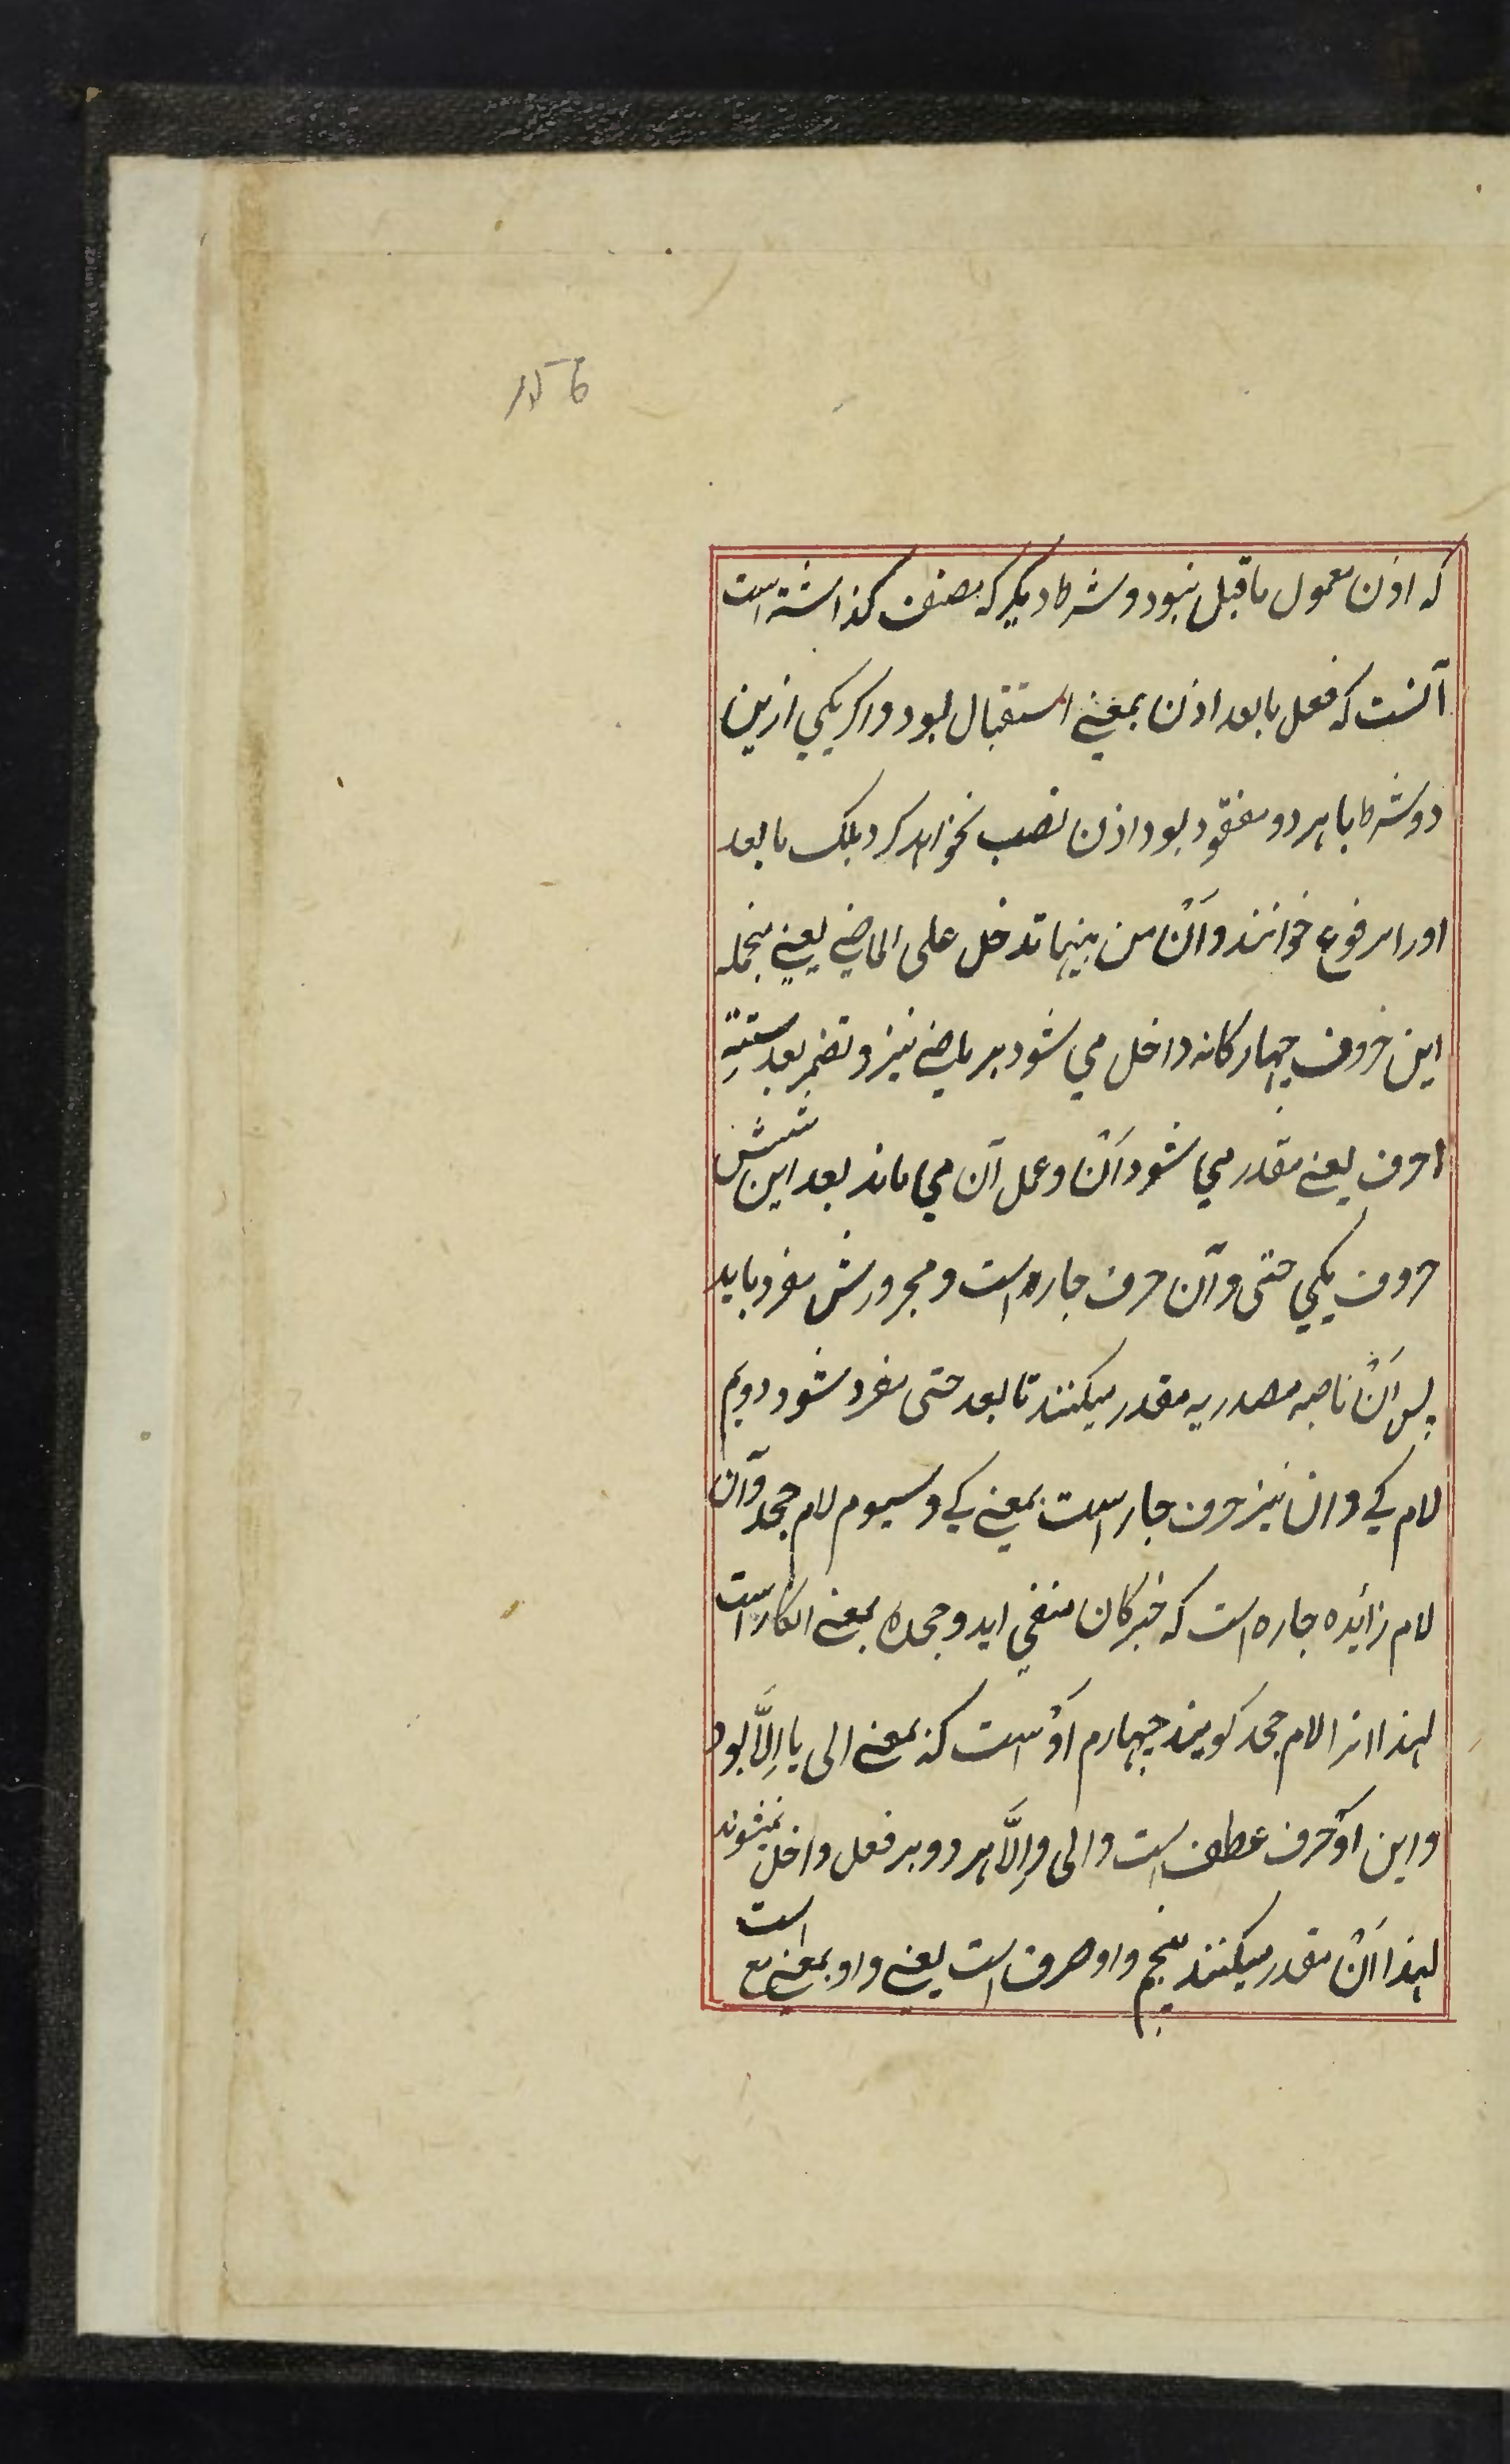 که اذن معمول ماقبل نبود و شرط دیکر که مصنف کذاشته است
آنست که فعل مابعد اذن بمعنے استقبال بود و اکر یکي ازین
دو شرط یا هر دو مفقود بود اذن نصب نخواهد کرد بلک مابعد
اورا مرفوع خوانند و اَنْ من بینها تدخل علی الماضے یعنے منجمله
این حروف چهارکانه داخل مي شود بر ماضے نیز و تضمر بعد ستةِ
احرف یعنے مقدر مي شود اَنْ و عمل آن مي ماند بعد این شش
حروف یکي حتی و آن حرف جاره است و مجرورش مفرد باید
پس اَنْ ناصبه مصدریه مقدر میکنند تا بعد حتی مفرد شود دویم
لام کَے و ان نیز حرف جار است بمعنے کے و سیوم لام جحد و آن
لام زائده جاره است که خبر کان منفي اید و جحد بمعنے انکار است
لهذا انرا لام جحد کویند چهارم اَوْ است که بمعنے الی یا اِلَّا بود
و این اَوْ حرف عطف است و الی و اِلَّا هر دو بر فعل داخل نمیشوند
لهذا اَنْ مقدر میکنند پنجم واو صرف است یعنے واو بمعنے مع است